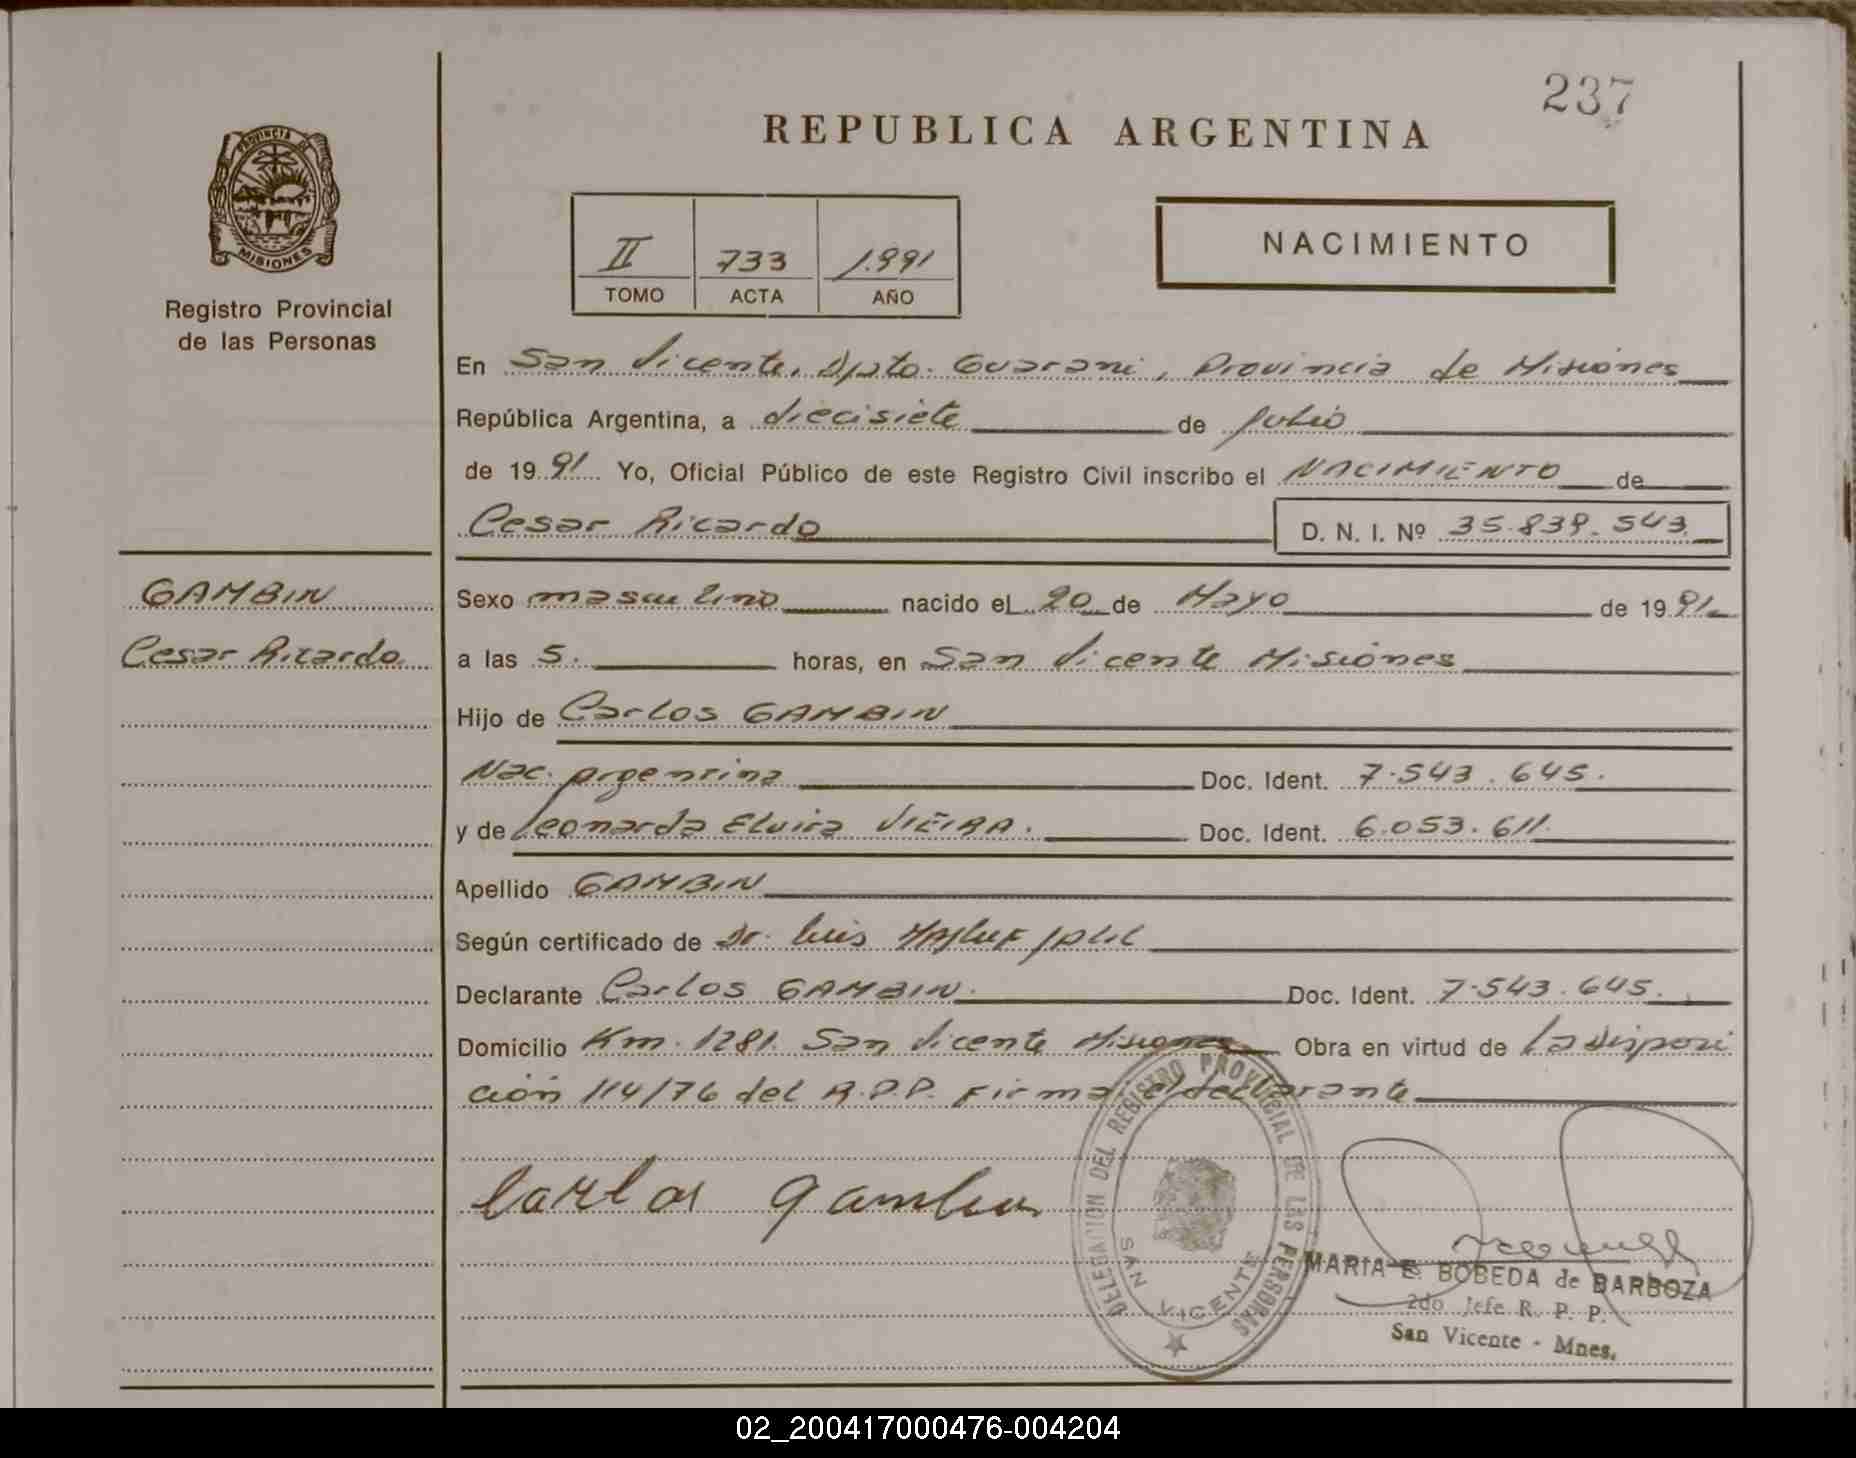 237
REPUBLICA ARGENTINA
PROVINCIA DE
MISIONES
Registro Provincial
de las Personas
II 733 1.991
TOMO ACTA AÑO
NACIMIENTO
En San Vicente, Dpto. Guarani, Provincia de Misiones
República Argentina, a diecisiete de julio
de 19 91 Yo, Oficial Público de este Registro Civil inscribo el NACIMIENTO de
Cesar Ricardo D. N. I. Nº 35.839.543.
GAMBIN
Cesar Ricardo
Sexo masculino nacido el 20 de Mayo de 19 91
a las 5. horas, en San Vicente Misiones
Hijo de Carlos GAMBIN
Nac. argentina Doc. Ident. 7.543.645.
y de Leonarda Elvira VIEIRA. Doc. Ident. 6.053.611.
Apellido GAMBIN
Según certificado de Dr. Luis
Declarante Carlos GAMBIN. Doc. Ident. 7.543.645.
Domicilio Km. 1281. San Vicente Misiones Obra en virtud de la disposi
ción 114/76 del R.P.P. Firma el declarante
Carlos Gambin
DELEGACION DEL REGISTRO PROVINCIAL DE LAS PERSONAS
SAN VICENTE
MARIA E. BOBEDA de BARBOZA
2do Jefe R. P. P.
San Vicente - Mnes.
02_200417000476-004204